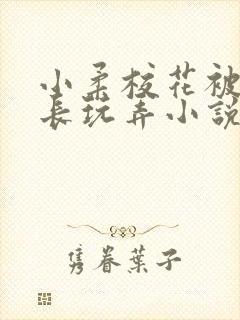 小柔校花被
长玩弄小說
隽眷葉子